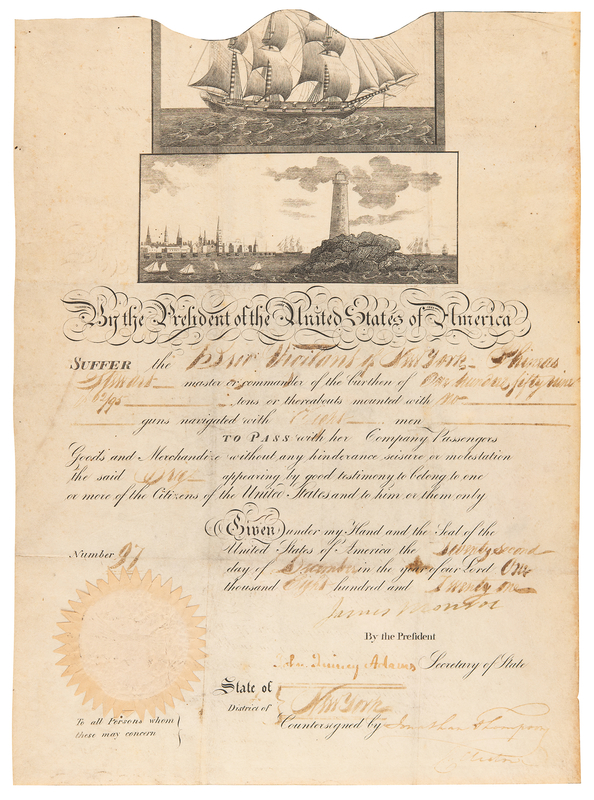 By the President of the United States of America
SUFFER the Brig Vigilant of New York Thomas
master or commander of the burthen of One hundred fifty nine
62/95 tons or thereabouts mounted with No
guns navigated with Eight men
TO PASS with her Company Passengers
Goods and Merchandize without any hinderance seisure or molestation
the said Brig appearing by good testimony to belong to one
or more of the Citizens of the United States and to him or them only
Given under my Hand and the Seal of the
United States of America the twenty second
Number 97
day of December in the year of our Lord One
thousand Eight hundred and Twenty one
James Monroe
By the President
John Quincy Adams Secretary of State
State of
District of New York
To all Persons whom
these may concern
Countersigned by Jonathan Thompson